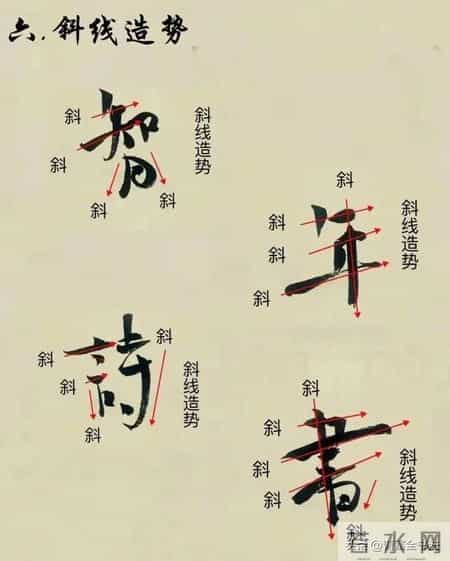 六.斜线造势
斜
智
斜
斜
斜
斜线造势
斜
斜
斜
年
斜
斜线造势
斜
斜
詩
斜
斜
斜线造势
斜
斜
斜
書
斜
斜
斜线造势
若水网